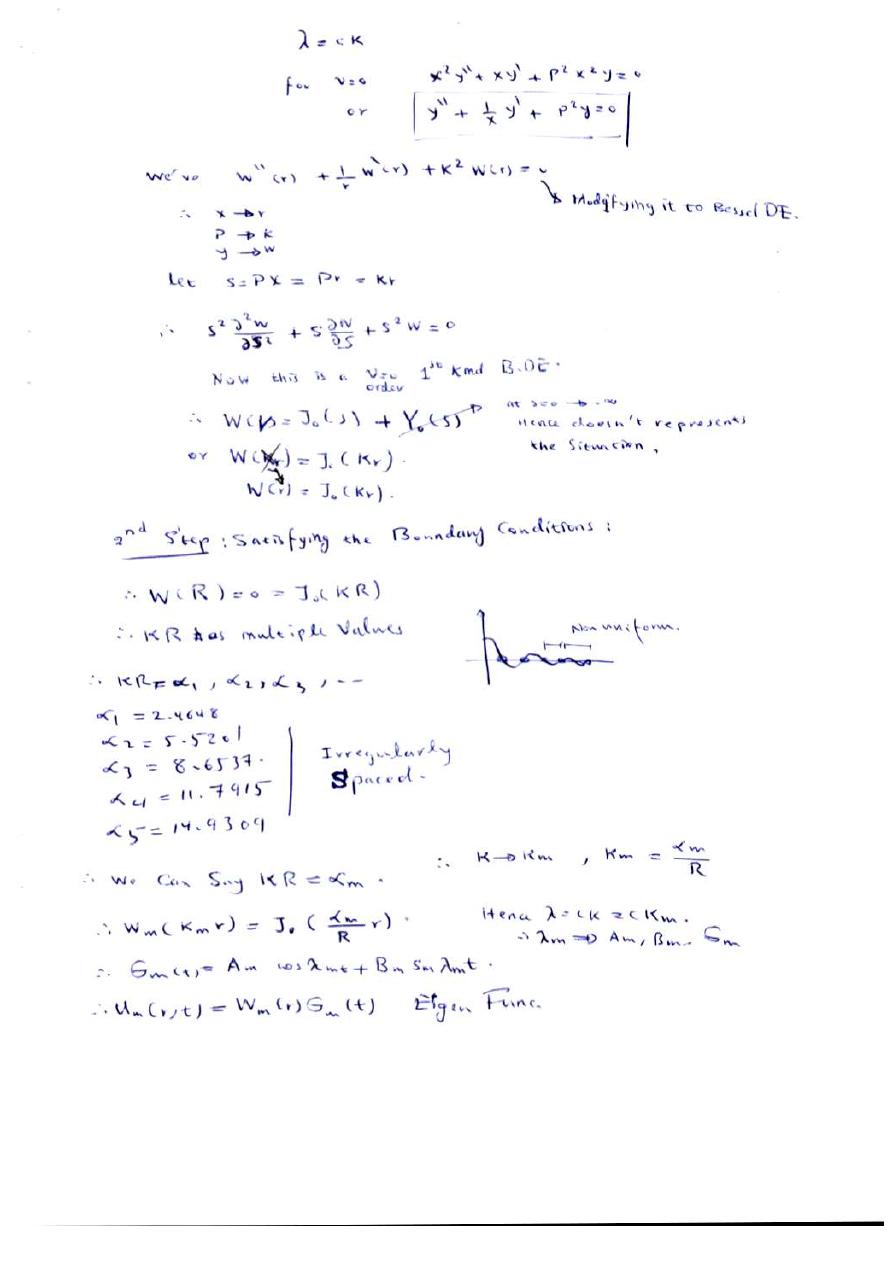 λ = cK
for ν=0 x²y'' + xy' + p²x²y = 0
or y'' + 1/x y' + p²y = 0
We've W''(r) + 1/r W'(r) + K² W(r) = 0
↘ Modifying it to Bessel DE.
∴ x → r
P → k
y → W
Let S = PX = Pr = Kr
∴ S² ∂²W/∂S² + S ∂W/∂S + S² W = 0
Now this is a ν=0 order 1st Kind B.DE.
∴ W(r) = J₀(s) + Y₀(s) → at s=0 → -∞
Hence doesn't represents
the Situation,
or W(Kr) = J₀(Kr).
W(r) = J₀(Kr).
2nd Step: Satisfying the Boundary Conditions:
∴ W(R) = 0 = J₀(KR)
∴ KR has multiple Values
Non uniform.
∴ KR = α₁, α₂, α₃, ---
α₁ = 2.4048
α₂ = 5.5201
α₃ = 8.6537.
α₄ = 11.7915
α₅ = 14.9309
Irregularly
Spaced.
∴ We Can Say KR = αm. ∴ K → Km, Km = αm/R
∴ Wm(Kmr) = J₀(αm/R r). Hence λ = cK = cKm.
∴ λm ⇒ Am, Bm, Gm
∴ Gm(t) = Am cos λmt + Bm Sin λmt.
∴ Um(r,t) = Wm(r)Gm(t) Eigen Func.